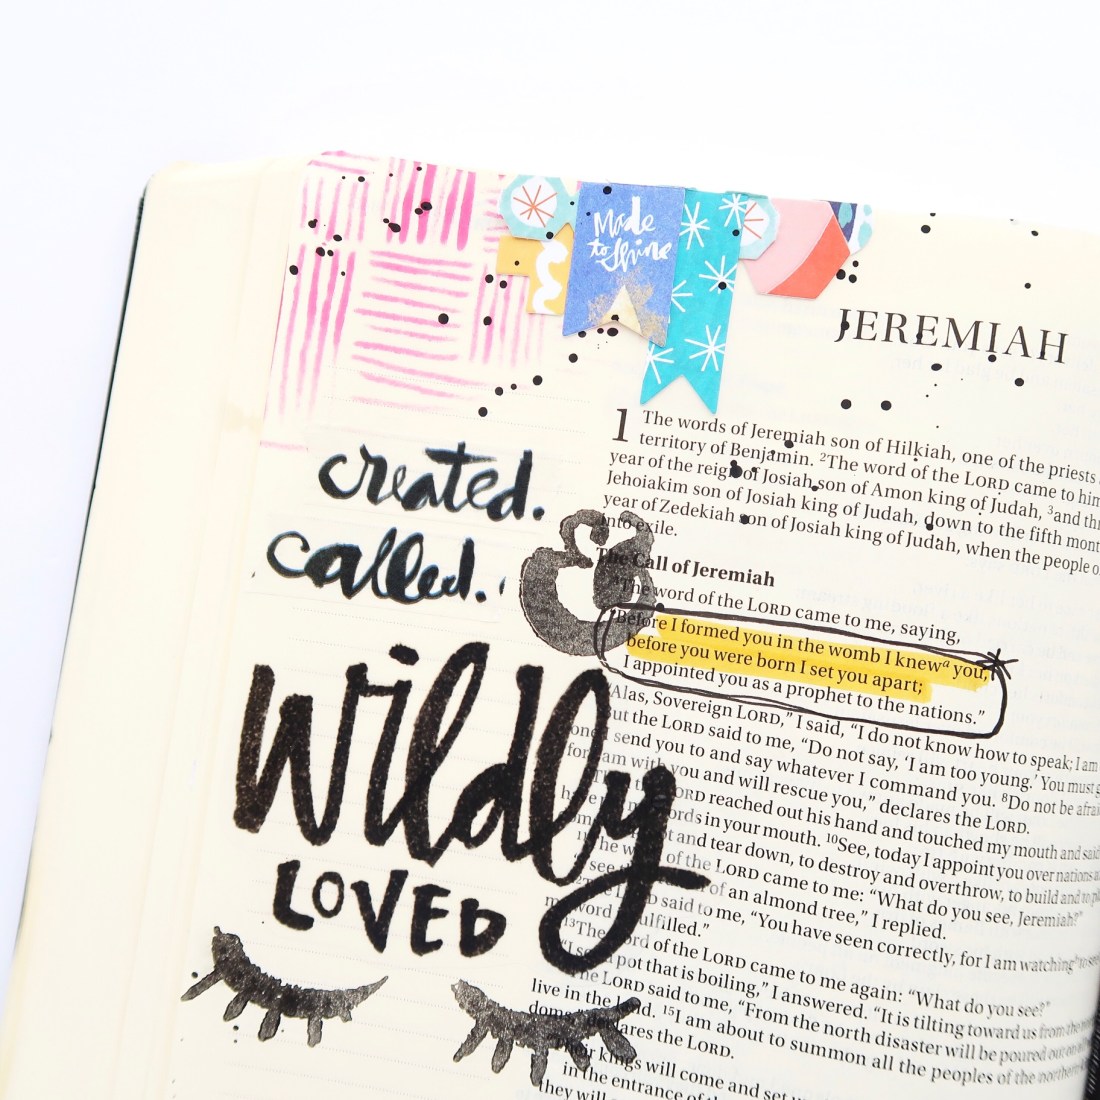 Made
to Shine
JEREMIAH
created.
called. &
Wildly
LOVED
1 The words of Jeremiah son of Hilkiah, one of the priests
territory of Benjamin. 2The word of the LORD came to him
year of the reign of Josiah son of Amon king of Judah, 3and
Jehoiakim son of Josiah king of Judah, down to the fifth
year of Zedekiah son of Josiah king of Judah, when the people
into exile.
The Call of Jeremiah
The word of the LORD came to me, saying,
"Before I formed you in the womb I knewa you,
before you were born I set you apart;
I appointed you as a prophet to the nations."
"Alas, Sovereign LORD," I said, "I do not know how to speak; I am
But the LORD said to me, "Do not say, 'I am too young.' You must
send you to and say whatever I command you. 8Do not be
am with you and will rescue you," declares the LORD.
the LORD reached out his hand and touched my mouth and said
words in your mouth. 10See, today I appoint you over nations
and tear down, to destroy and overthrow, to build and to
11The of the LORD came to me: "What do you see, Jeremiah?"
"I see of an almond tree," I replied.
12The LORD said to me, "You have seen correctly, for I am watching to see
my word fulfilled."
13The word of the LORD came to me again: "What do you see?"
"I see pot that is boiling," I answered. "It is tilting toward us from the
The LORD said to me, "From the north disaster will be poured out on
live in the land. 15I am about to summon all the peoples of the northern
declares the LORD.
kings will come and set
in the entrance of
they will